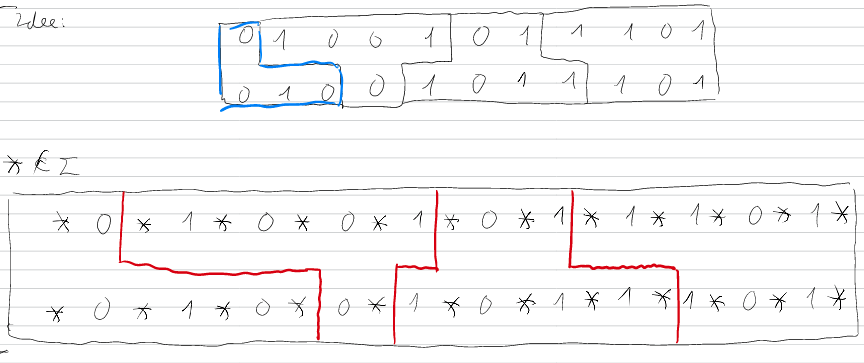 Idee:
0 1 0 0 1 0 1 1 1 0 1
0 1 0 0 1 0 1 1 1 0 1
* ∉ Σ
* 0 * 1 * 0 * 0 * 1 * 0 * 1 * 1 * 1 * 0 * 1 *
* 0 * 1 * 0 * 0 * 1 * 0 * 1 * 1 * 1 * 0 * 1 *